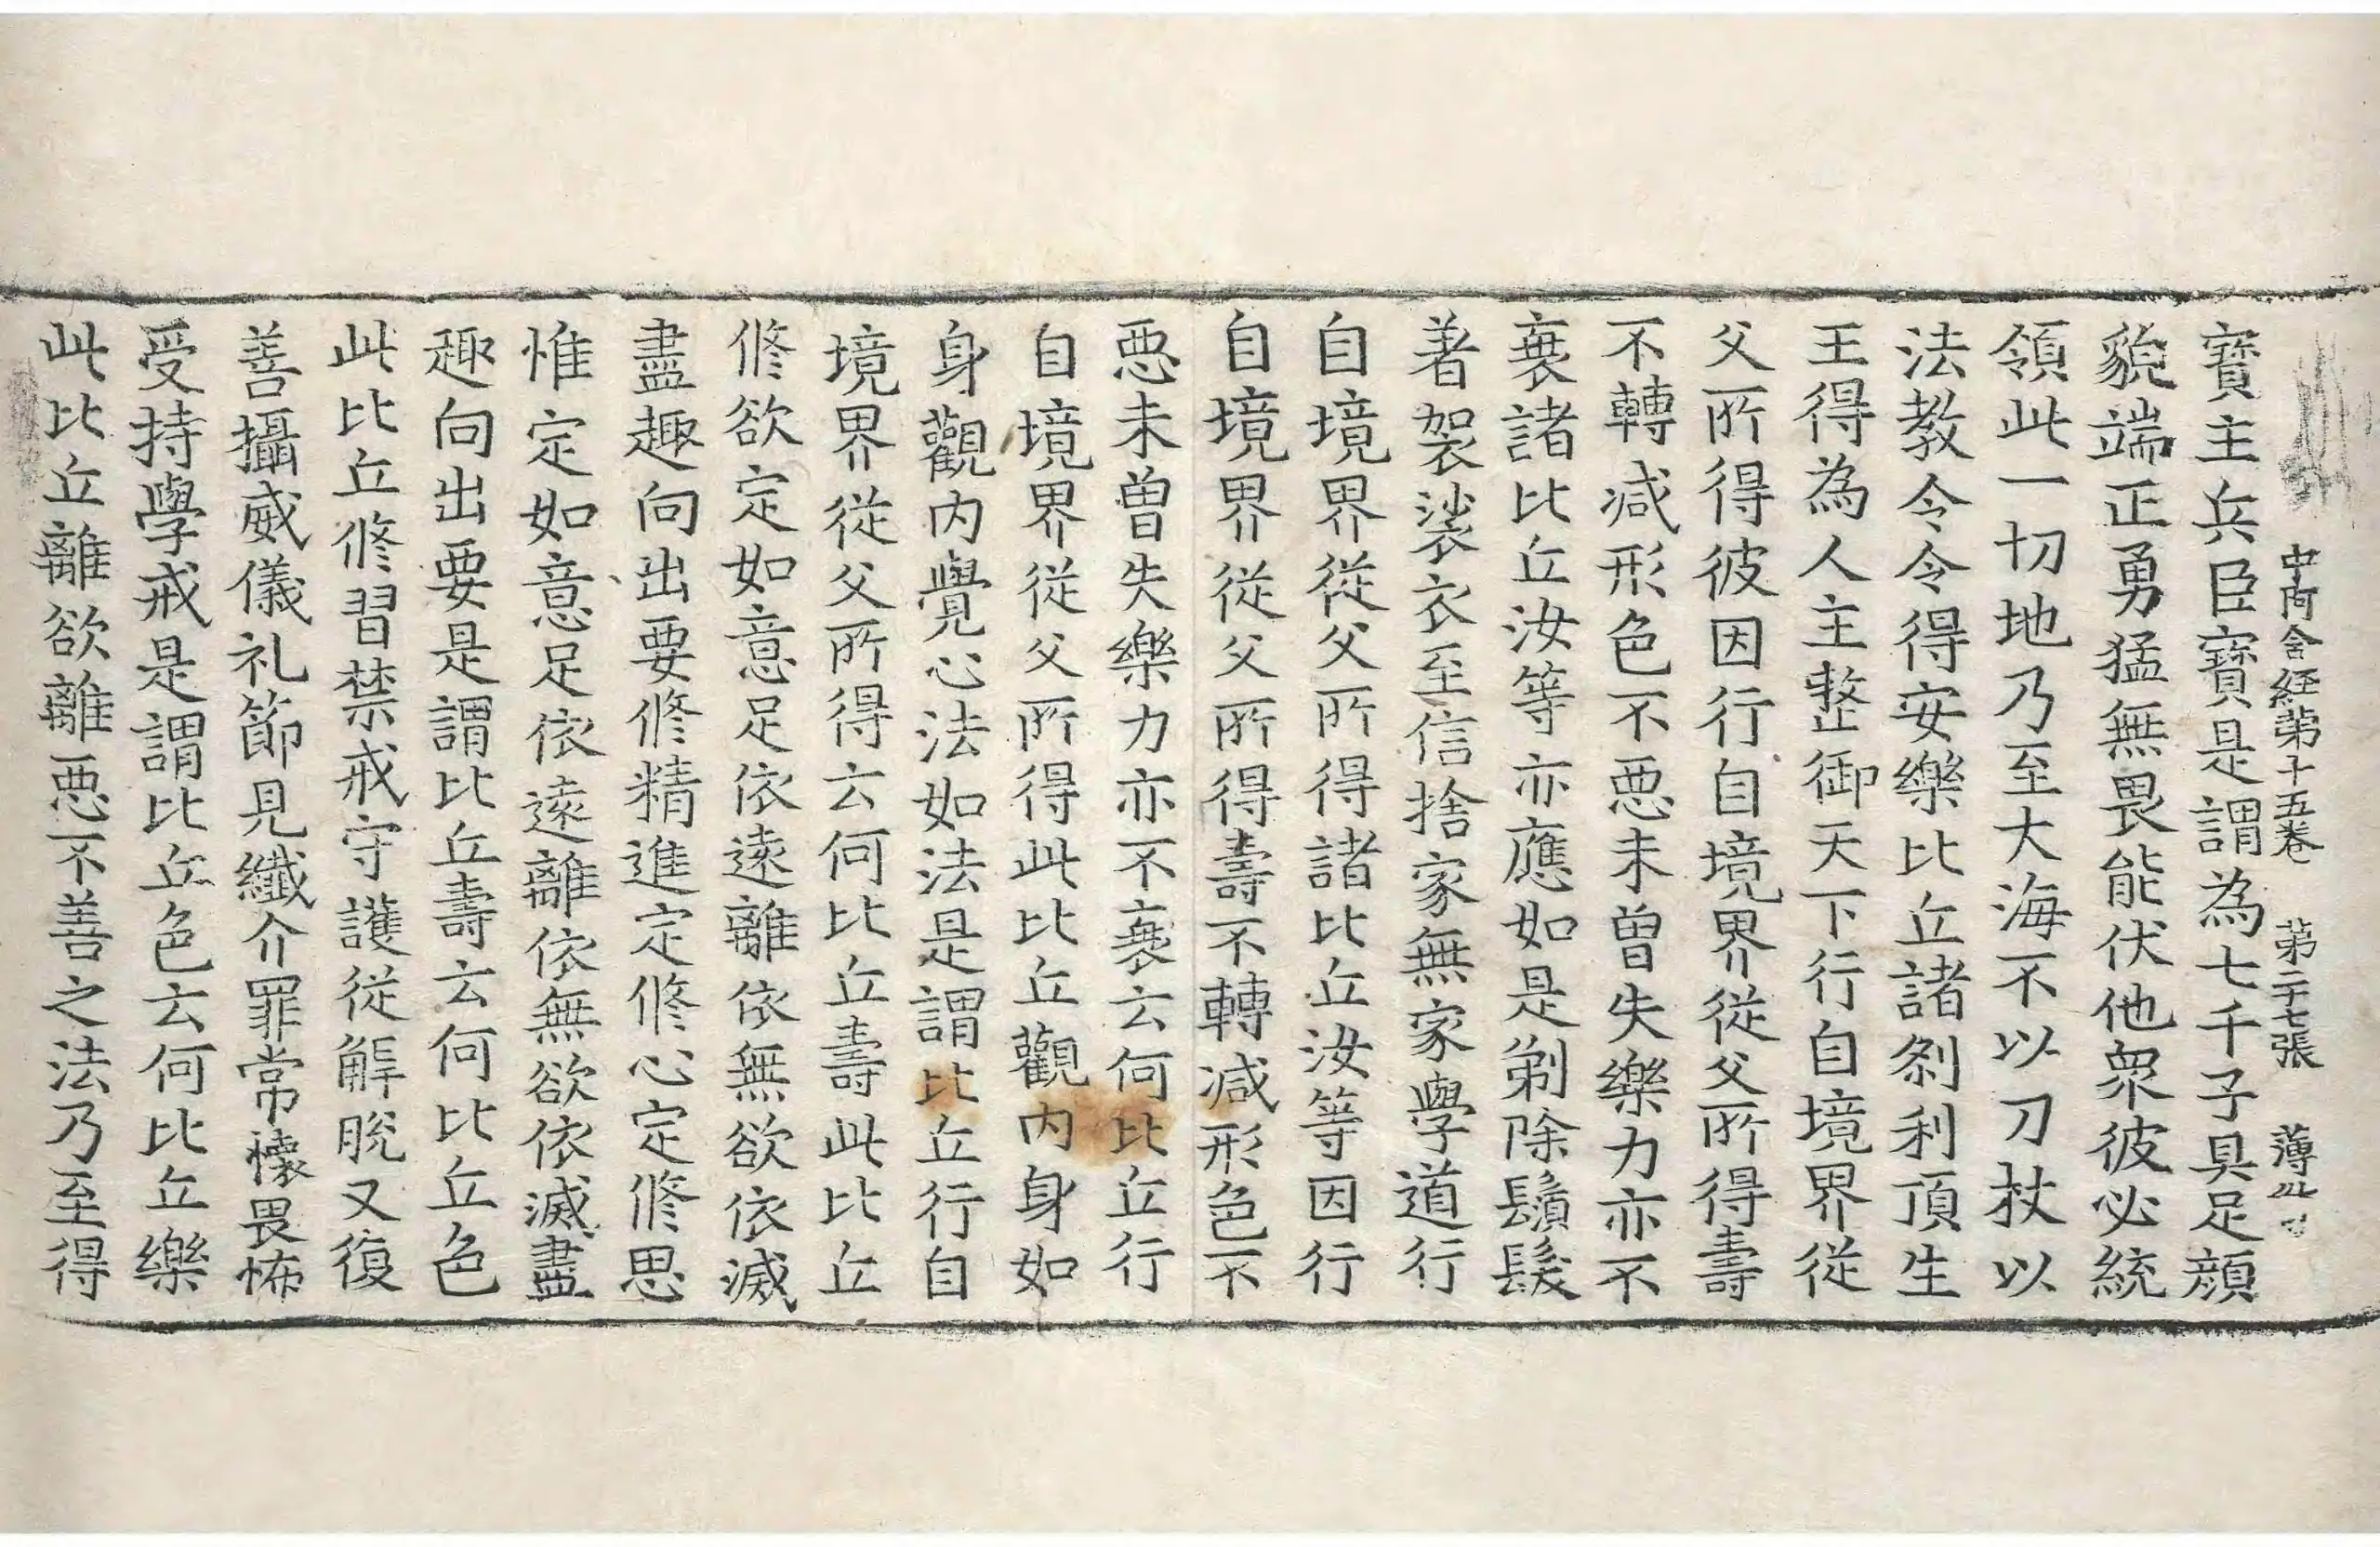 中阿含経第十五卷　第二十七張　薄
寶主兵臣寶是謂為七千子具足顔
貌端正勇猛無畏能伏他衆彼必統
領此一切地乃至大海不以刀杖以
法教令令得安樂比丘諸刹利頂生
王得為人主整御天下行自境界從
父所得彼因行自境界從父所得壽
不轉减形色不惡未曽失樂力亦不
衰諸比丘汝等亦應如是剃除鬚髮
著袈裟衣至信捨家無家學道行
自境界從父所得諸比丘汝等因行
自境界從父所得壽不轉减形色不
惡未曽失樂力亦不衰云何比丘行
自境界從父所得此比丘觀内身如
身觀内覺心法如法是謂比丘行自
境界從父所得云何比丘壽此比丘
修欲定如意足依遠離依無欲依滅
盡趣向出要修精進定修心定修思
惟定如意足依遠離依無欲依滅盡
趣向出要是謂比丘壽云何比丘色
此比丘修習禁戒守護從解脫又復
善攝威儀礼節見纖介罪常懷畏怖
受持學戒是謂比丘色云何比丘樂
此比丘離欲離惡不善之法乃至得